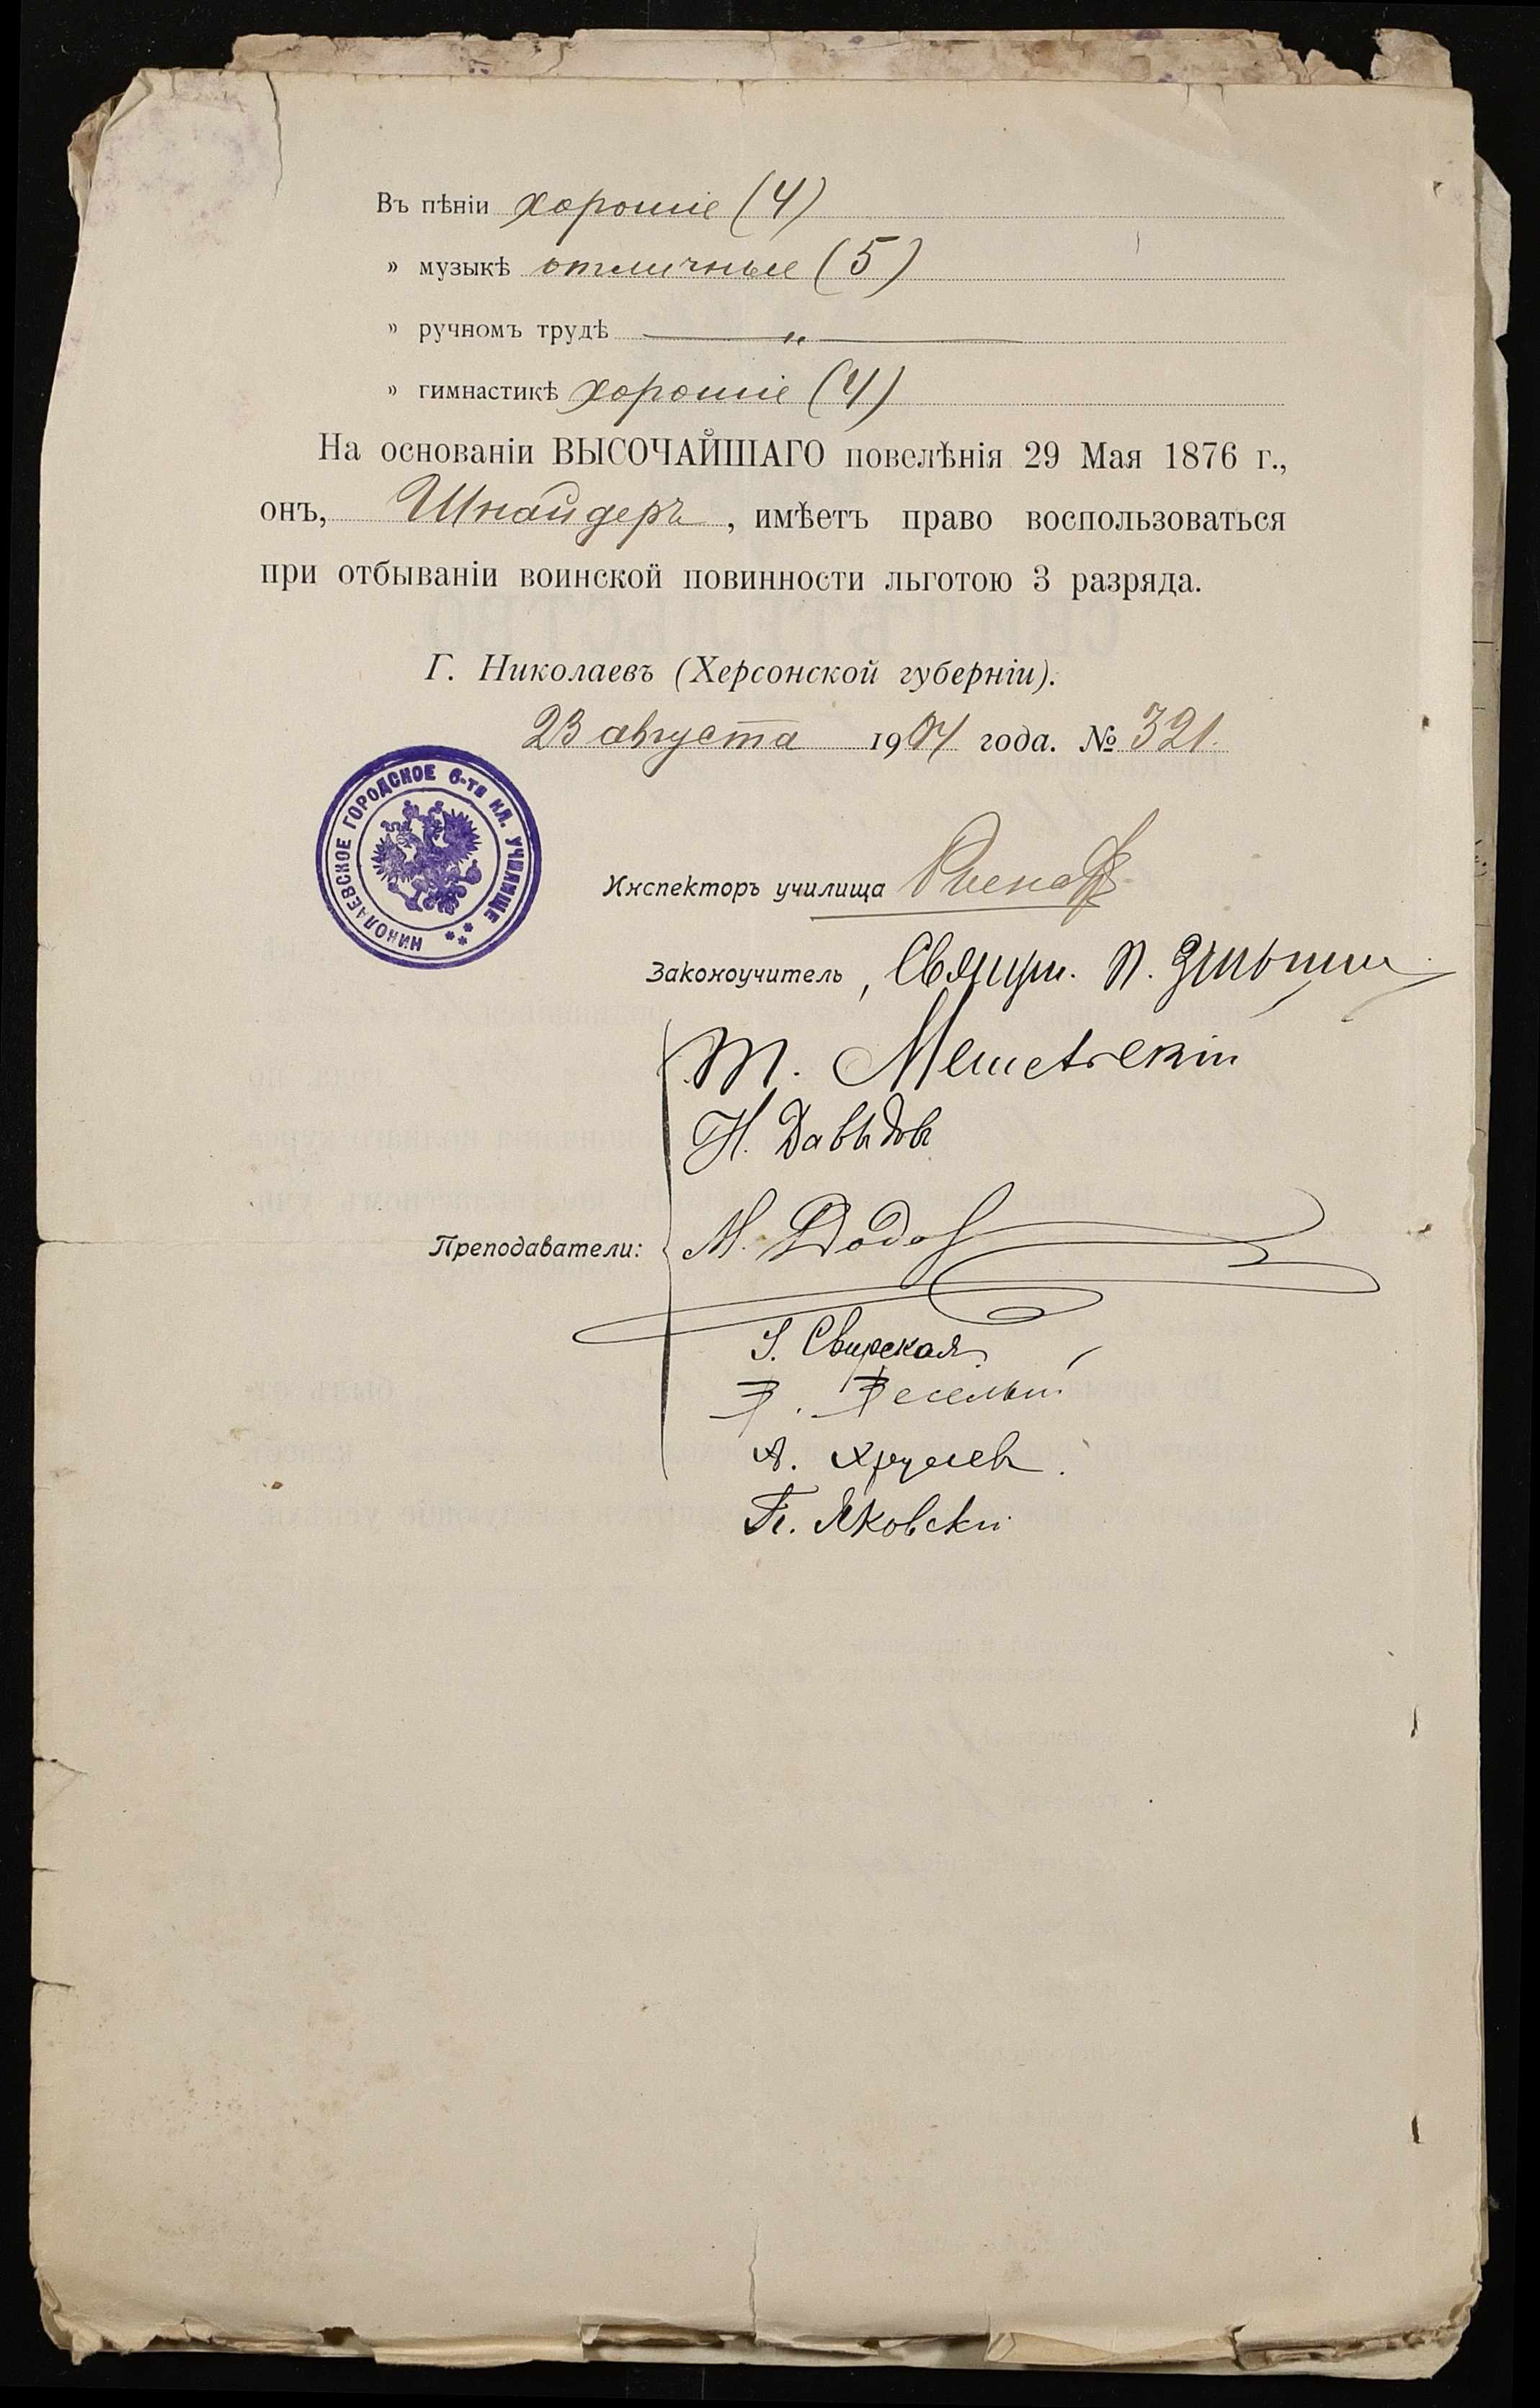 Въ пѣніи хорошіе (4)
» музыкѣ отличные (5)
» ручномъ трудѣ — „ —
» гимнастикѣ хорошіе (4)
На основаніи ВЫСОЧАЙШАГО повелѣнія 29 Мая 1876 г.,
онъ, Шнайдеръ, имѣетъ право воспользоваться
при отбываніи воинской повинности льготою 3 разряда.
Г. Николаевъ (Херсонской губерніи).
23 августа 1904 года. № 321.
НИКОЛАЕВСКОЕ ГОРОДСКОЕ 6-ТИ КЛ. УЧИЛИЩЕ
Инспекторъ училища
Законоучитель, Священ. П.
Н. Давыдовъ
Преподаватели: М. Додо
Свирская
В. Веселый
А. Хрулевъ
Яковскій